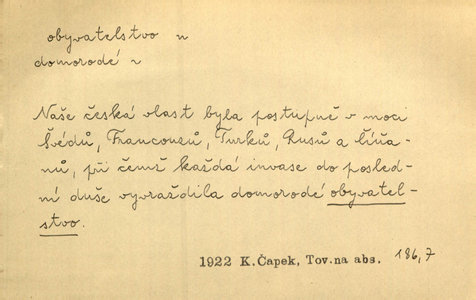 obyvatelstvo n
domorodé ~
Naše česká vlast byla postupně v moci
Švédů, Francouzů, Turků, Rusů a Číňa-
nů, při čemž každá invase do posled-
ní duše vyvraždila domorodé obyvatel-
stvo.
1922 K.Čapek, Tov.na abs. 186,7